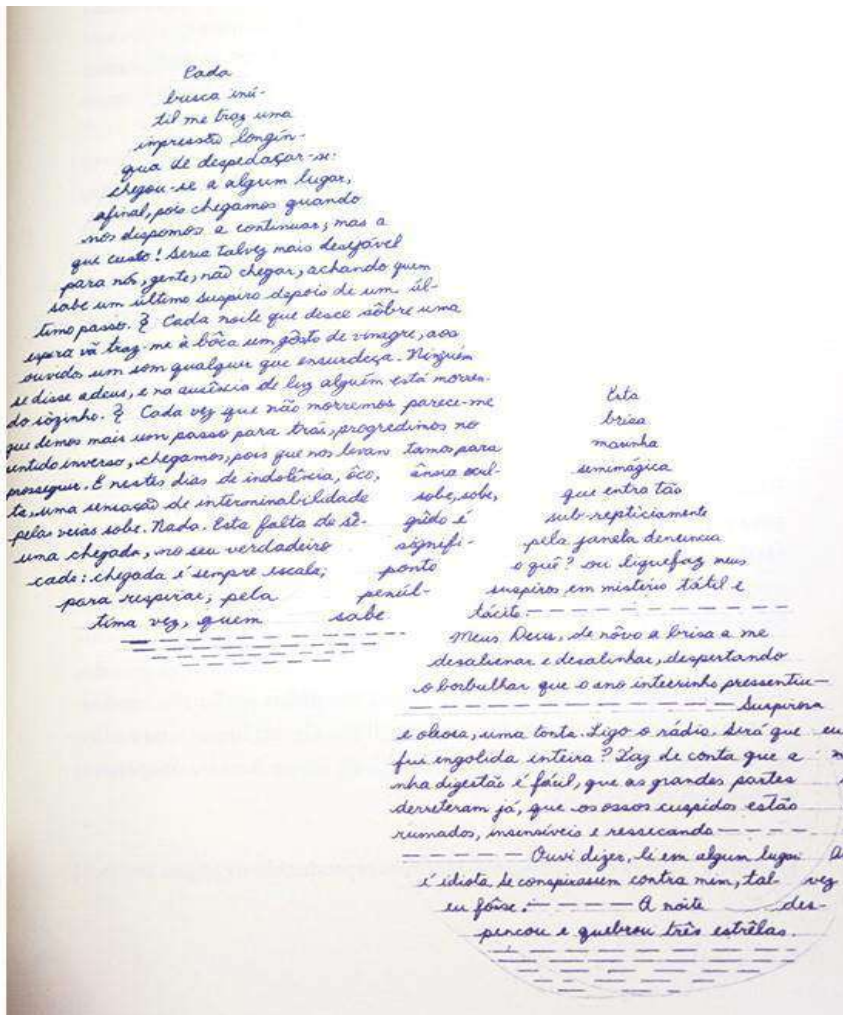 Cada
busca inú-
til me traz uma
impressão longín-
qua de despedaçar-se:
chegou-se a algum lugar,
afinal, pois chegamos quando
nos dispomos a continuar; mas a
que custo! Seria talvez mais desejável
para nós, gente, não chegar, achando quem
sabe um último suspiro depois de um úl-
timo passo. § Cada noite que desce sôbre uma
espera vã traz-me à bôca um gôsto de vinagre, aos
ouvidos um som qualquer que ensurdeça. Ninguém
se disse adeus, e na ausência de luz alguém está morren-
do sòzinho. § Cada vez que não morremos parece-me
que demos mais um passo para trás, progredimos no
sentido inverso, chegamos, pois que nos levan tamos para
prosseguir. E nestes dias de indolência, ôco, ânsia ocul-
ta, uma sensação de interminabilidade sobe, sobe,
pelas veias sobe. Nada. Esta falta de sê- grêdo é
uma chegada, no seu verdadeiro signifi-
cado: chegada é sempre escala; ponto
para respirar, pela penúl-
tima vez, quem sabe
Esta
brisa
marinha
semimágica
que entra tão
sub-repticiamente
pela janela denuncia
o quê? ou liquefaz meus
suspiros em mistério tátil e
tácito.
Meus Deus, de nôvo a brisa a me
desalienar e desalinhar, despertando
o borbulhar que o ano inteirinho pressentiu—
Suspirosa
e oleosa, uma tonta. Ligo o rádio. Será que eu
fui engolida inteira? Faz de conta que a
nha digestão é fácil, que as grandes partes
derreteram já, que os ossos cuspidos estão
rumados, insensíveis e ressecando
Ouvi dizer, li em algum lugar
é idiota. Se conspirassem contra mim, tal- vez
eu fôsse. A noite des-
pencou e quebrou três estrêlas.